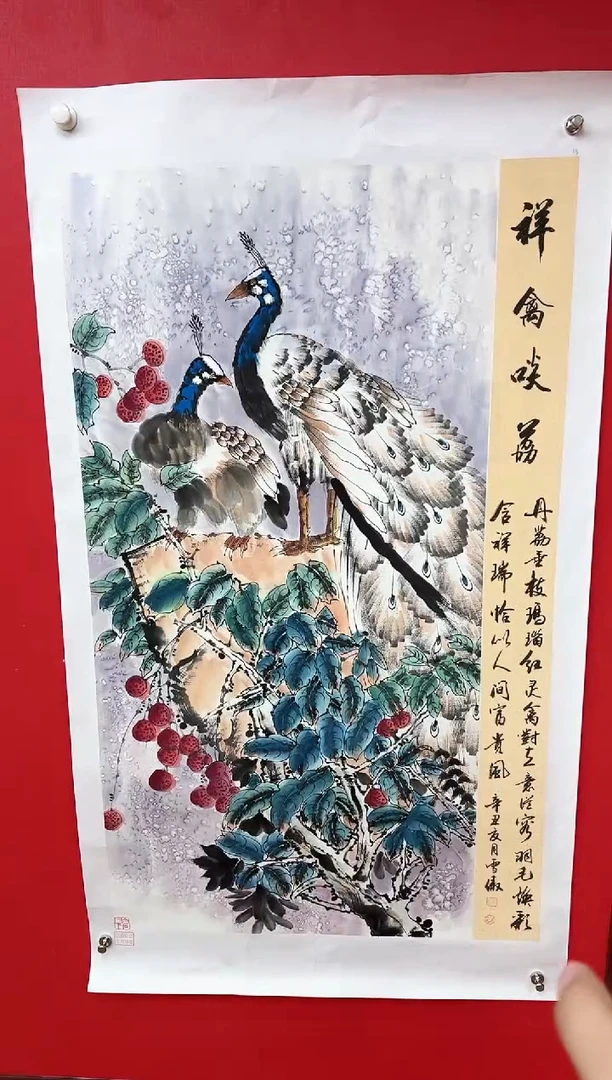 祥禽啖荔
丹荔垂枝玛瑙红灵禽對立意從容羽毛焕彩
含祥瑞恰似人间富贵風 辛丑亥月雪傲